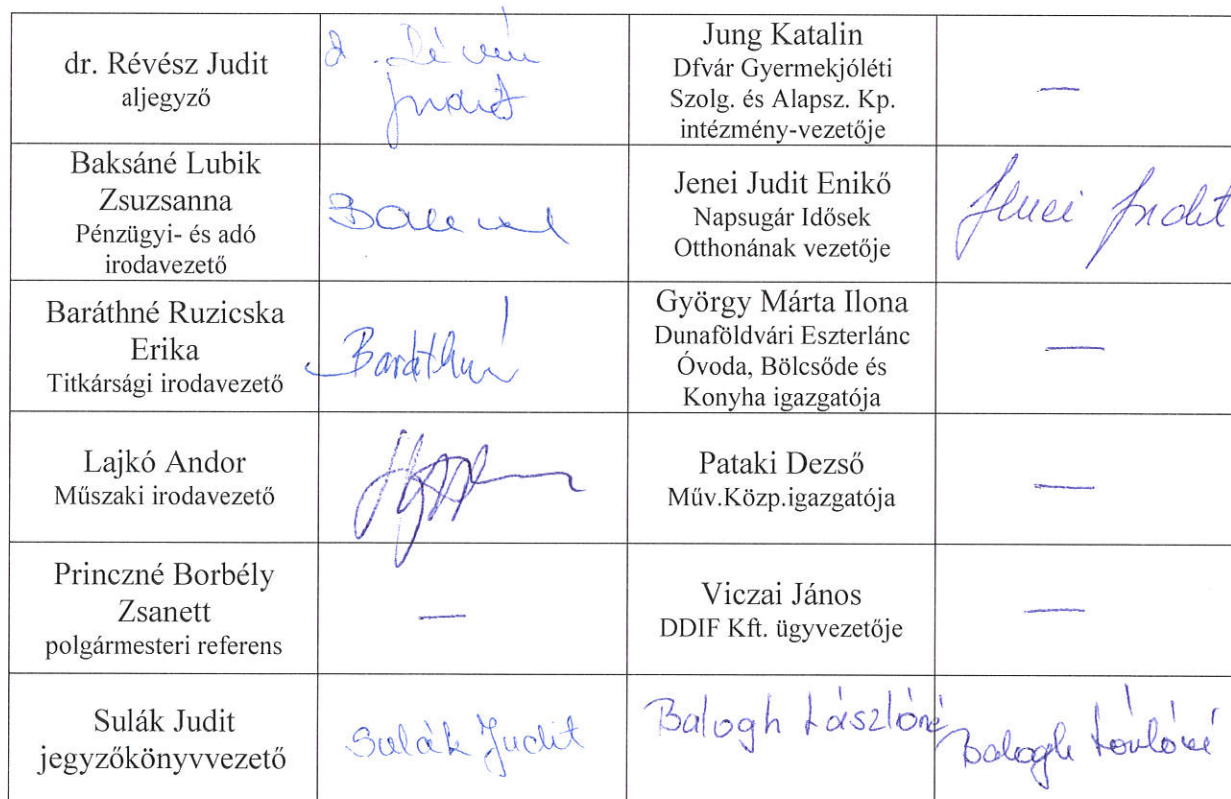 dr. Révész Judit
aljegyző
Judit
Jung Katalin
Dfvár Gyermekjóléti
Szolg. és Alapsz. Kp.
intézmény-vezetője
—
Baksáné Lubik
Zsuzsanna
Pénzügyi- és adó
irodavezető
Jenei Judit Enikő
Napsugár Idősek
Otthonának vezetője
Jenei Judit
Baráthné Ruzicska
Erika
Titkársági irodavezető
Baráthné
György Márta Ilona
Dunaföldvári Eszterlánc
Óvoda, Bölcsőde és
Konyha igazgatója
—
Lajkó Andor
Műszaki irodavezető
Pataki Dezső
Műv.Közp.igazgatója
—
Princzné Borbély
Zsanett
polgármesteri referens
—
Viczai János
DDIF Kft. ügyvezetője
—
Sulák Judit
jegyzőkönyvvezető
Sulák Judit
Balogh Lászlóné
Balogh Lászlóné